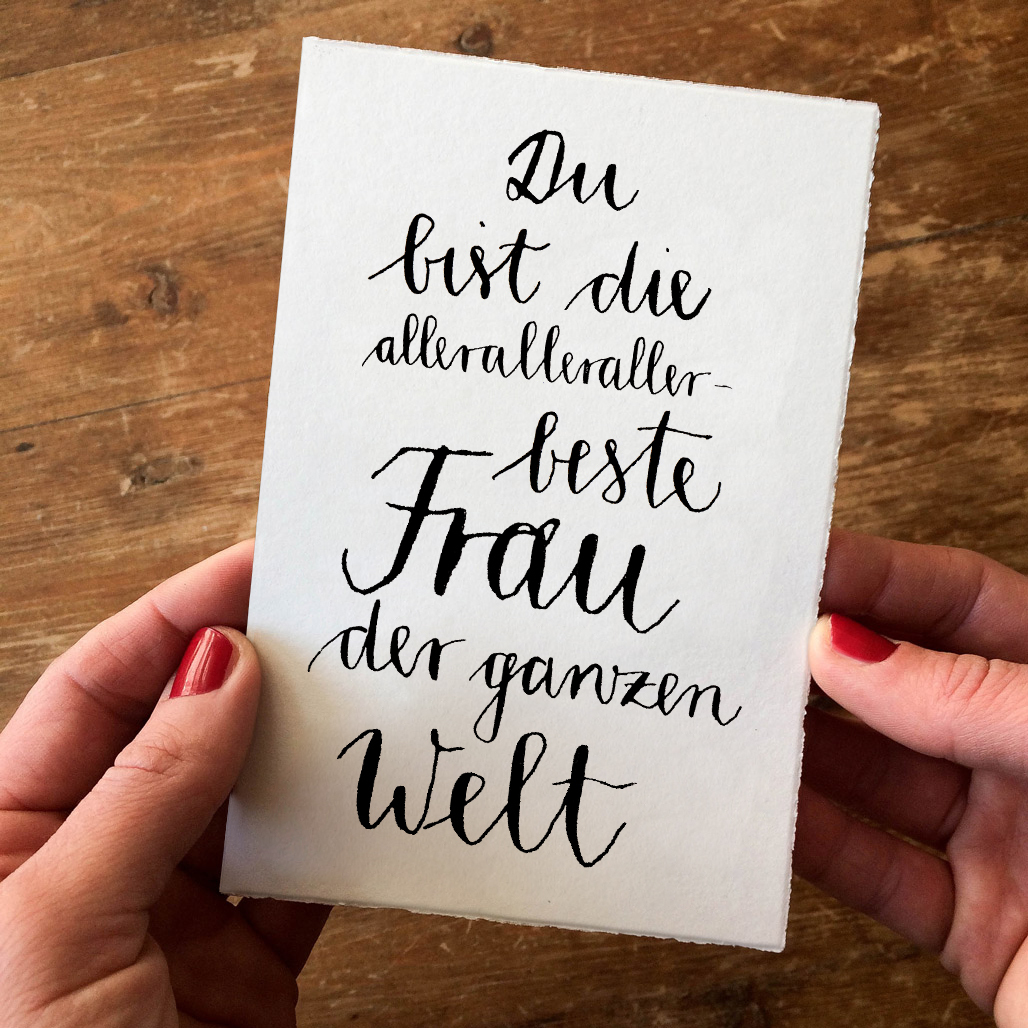 Du
bist die
alleralleraller-
beste
Frau
der ganzen
Welt